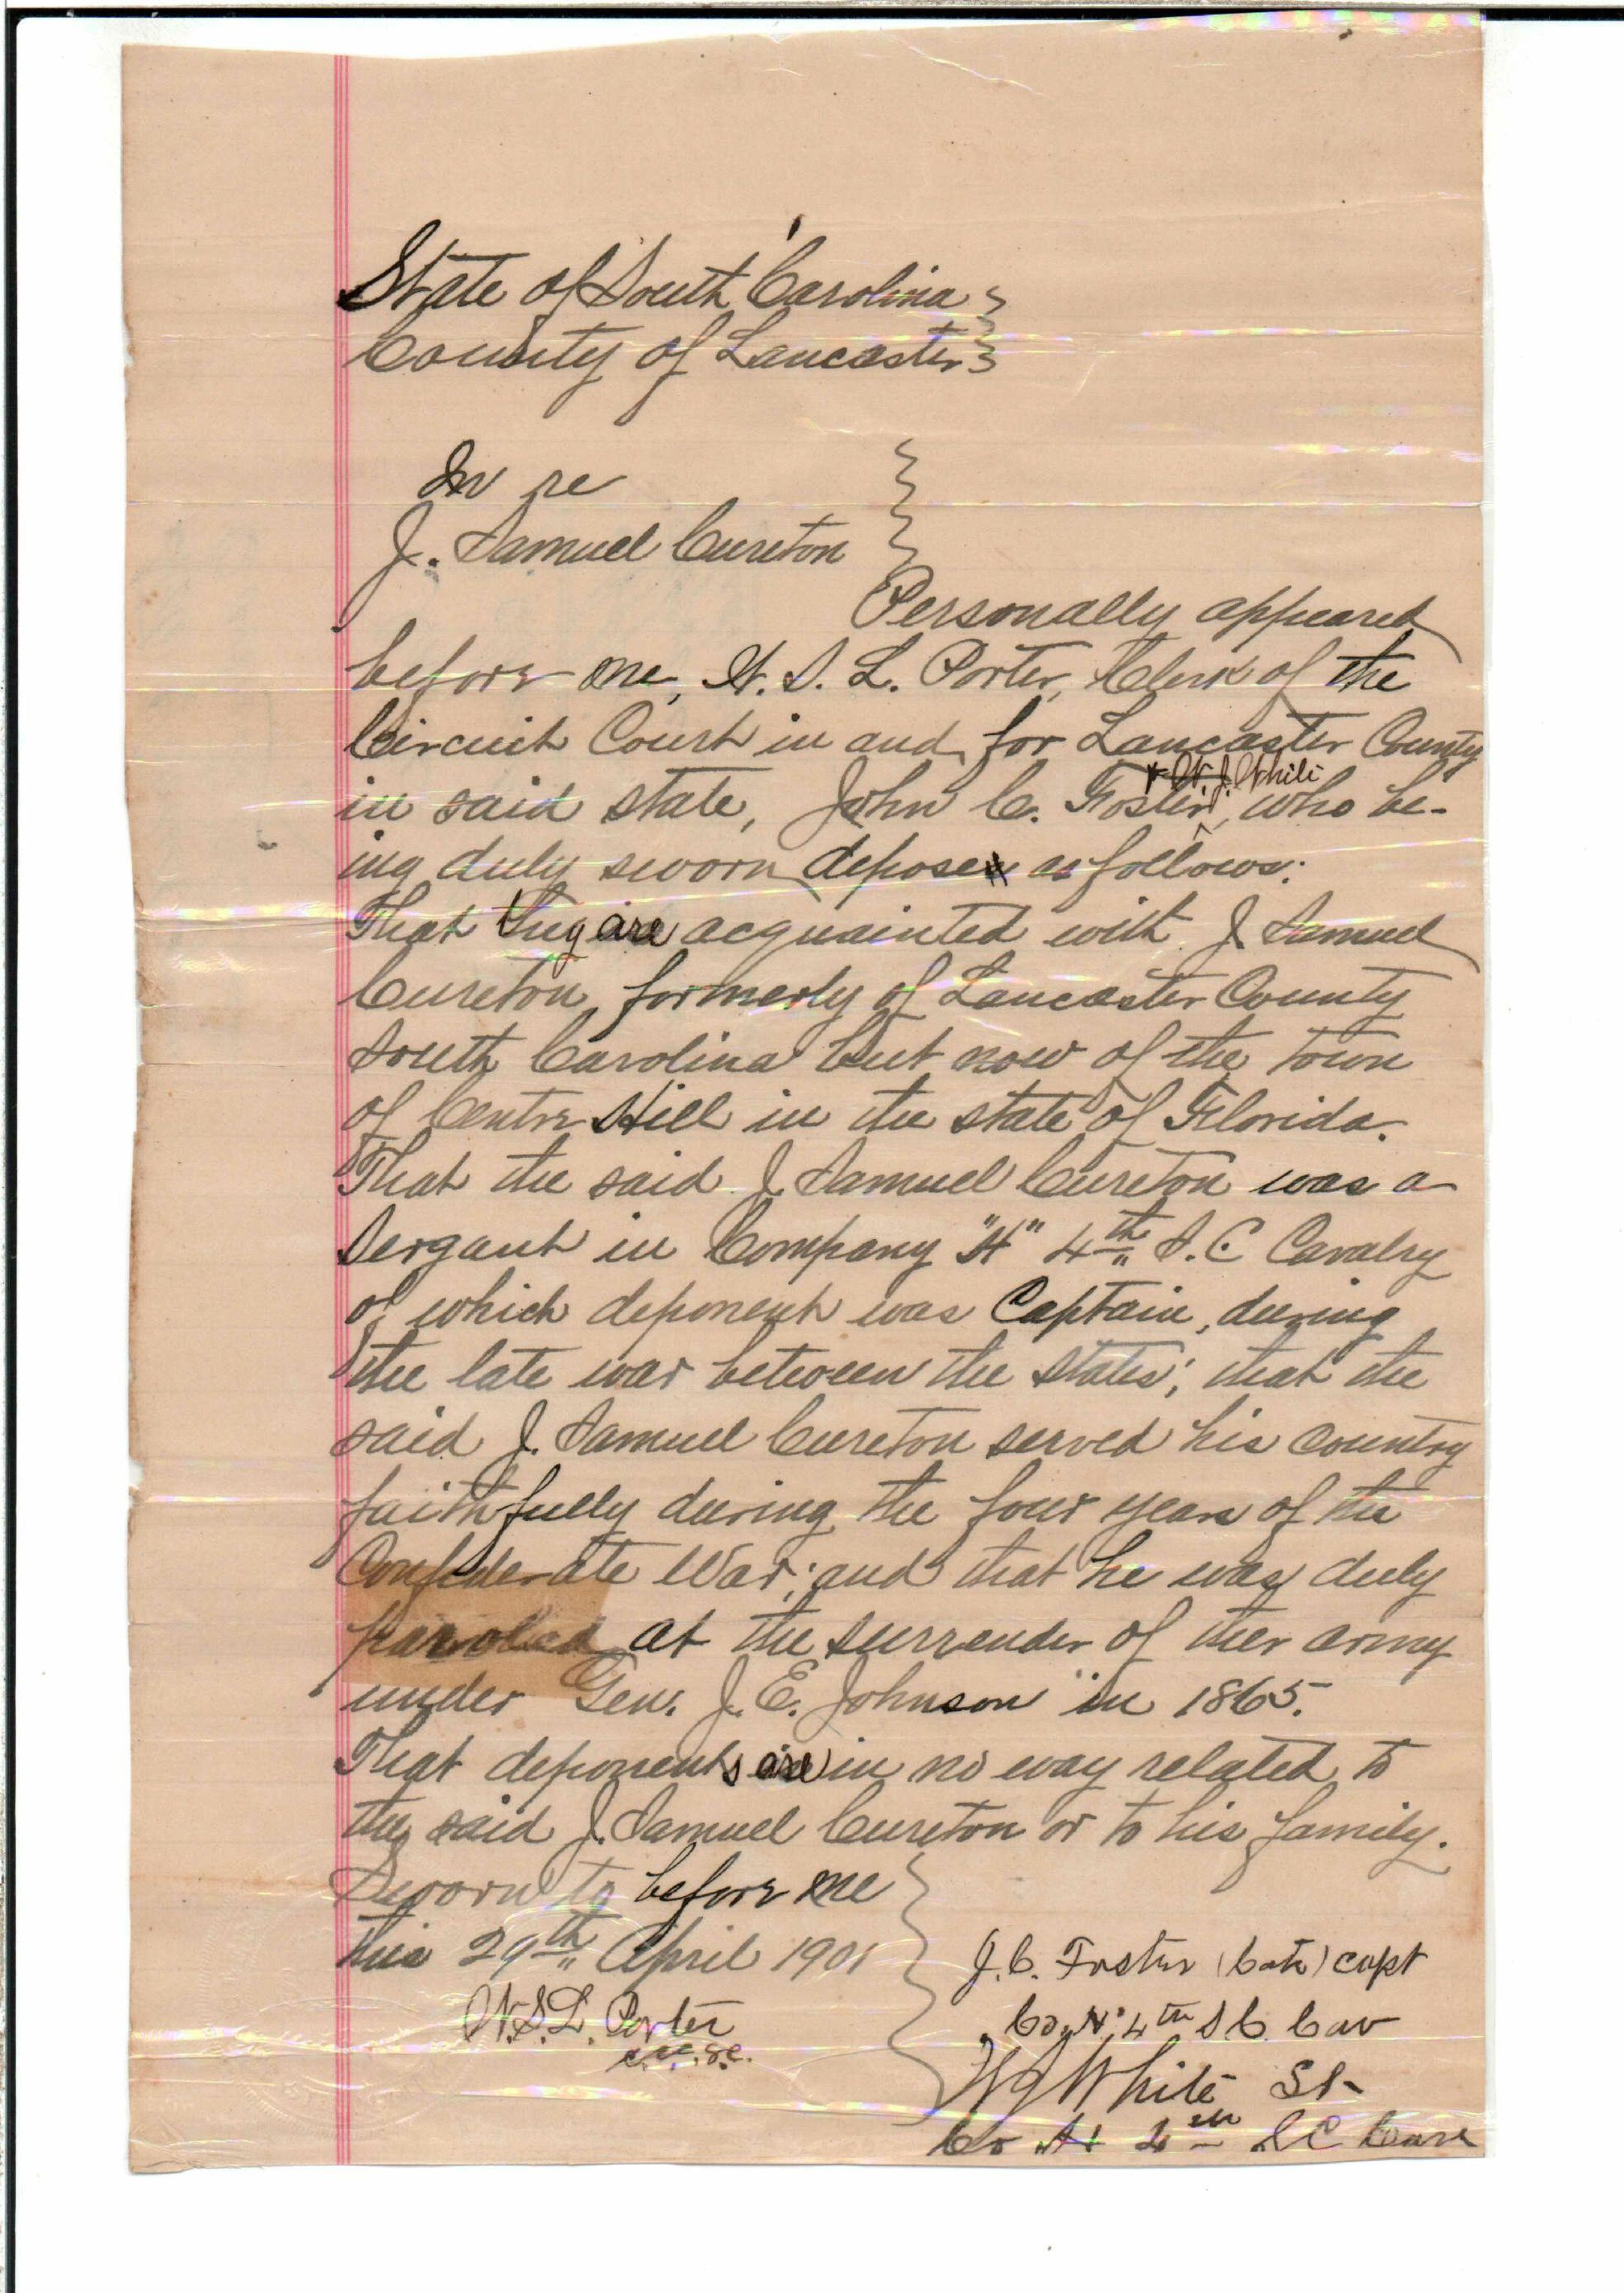 State of South Carolina
County of Lancaster
In re
J. Samuel Cureton
Personally appeared
before me, W. S. L. Porter, Clerk of the
Circuit Court in and for Lancaster County
in said state, John C. Foster, & W. J. White who be-
ing duly sworn depose as follows:
That they are acquainted with J Samuel
Cureton, formerly of Lancaster County
South Carolina but now of the town
of Centre Hill in the state of Florida.
That the said J. Samuel Cureton was a
Sergant in Company "H" 4th S. C Cavalry
of which deponent was Captain, during
the late war between the states; that the
said J. Samuel Cureton served his country
faithfully during the four years of the
Confederate War; and that he was duly
paroled at the surrender of ther army
under Gen. J. E. Johnson in 1865.
That deponents are in no way related to
the said J. Samuel Cureton or to his family.
Sworn to before me
this 29th April 1901
W. S. L. Porter
J. C. Foster (late) capt
Co H 4th S C. Cav
W J White
Co H 4th S C Cav